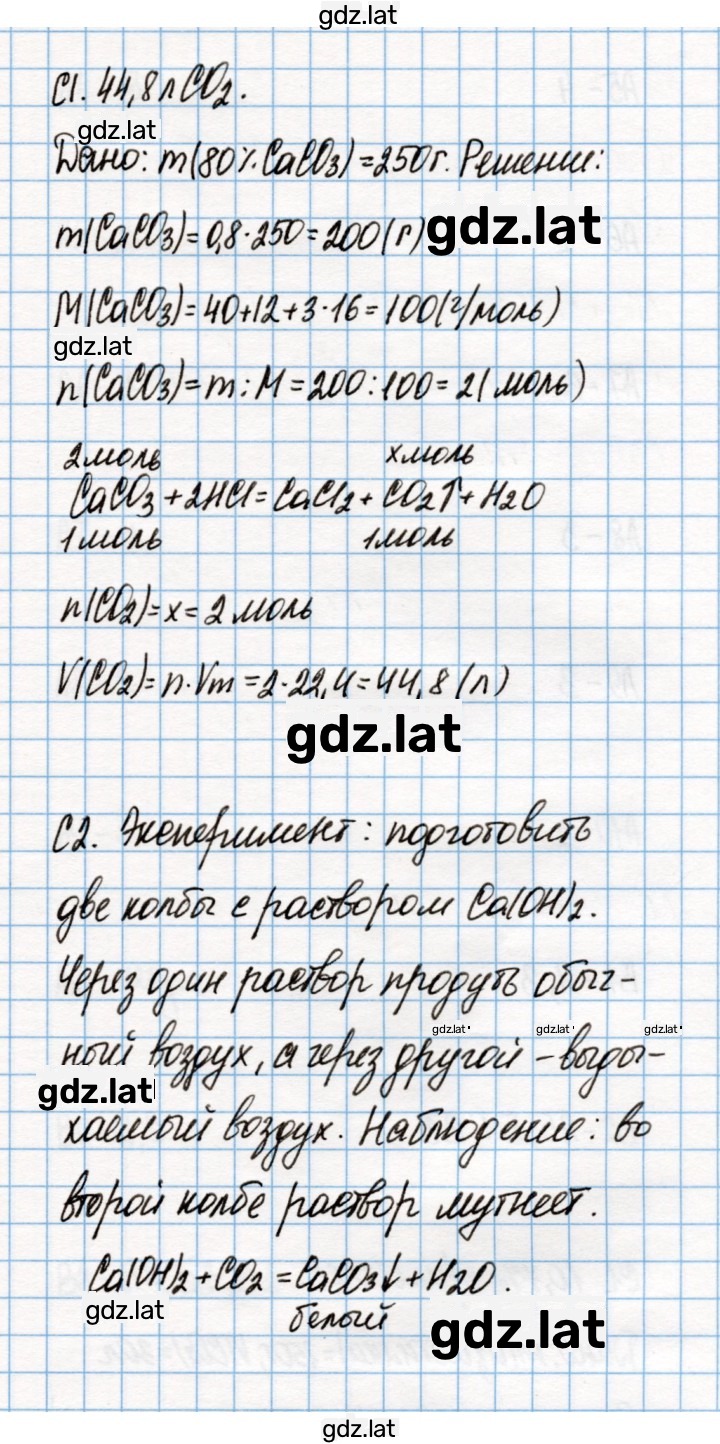 gdz.lat
C1. 44,8 л CO₂.
gdz.lat
Дано: m(80% CaCO₃)=250г. Решение:
m(CaCO₃)=0,8·250=200(г)
gdz.lat
M(CaCO₃)=40+12+3·16=100(г/моль)
gdz.lat
n(CaCO₃)=m:M=200:100=2(моль)
2 моль x моль
CaCO₃+2HCl=CaCl₂+CO₂↑+H₂O
1 моль 1 моль
n(CO₂)=x=2 моль
V(CO₂)=n·Vm=2·22,4=44,8(л)
gdz.lat
C2. Эксперимент: подготовить
две колбы с раствором Ca(OH)₂.
Через один раствор продуть обыч-
gdz.lat gdz.lat gdz.lat
ный воздух, а через другой – выды-
gdz.lat
хаемый воздух. Наблюдение: во
второй колбе раствор мутнеет.
Ca(OH)₂+CO₂=CaCO₃↓+H₂O.
gdz.lat
белый
gdz.lat
gdz.lat